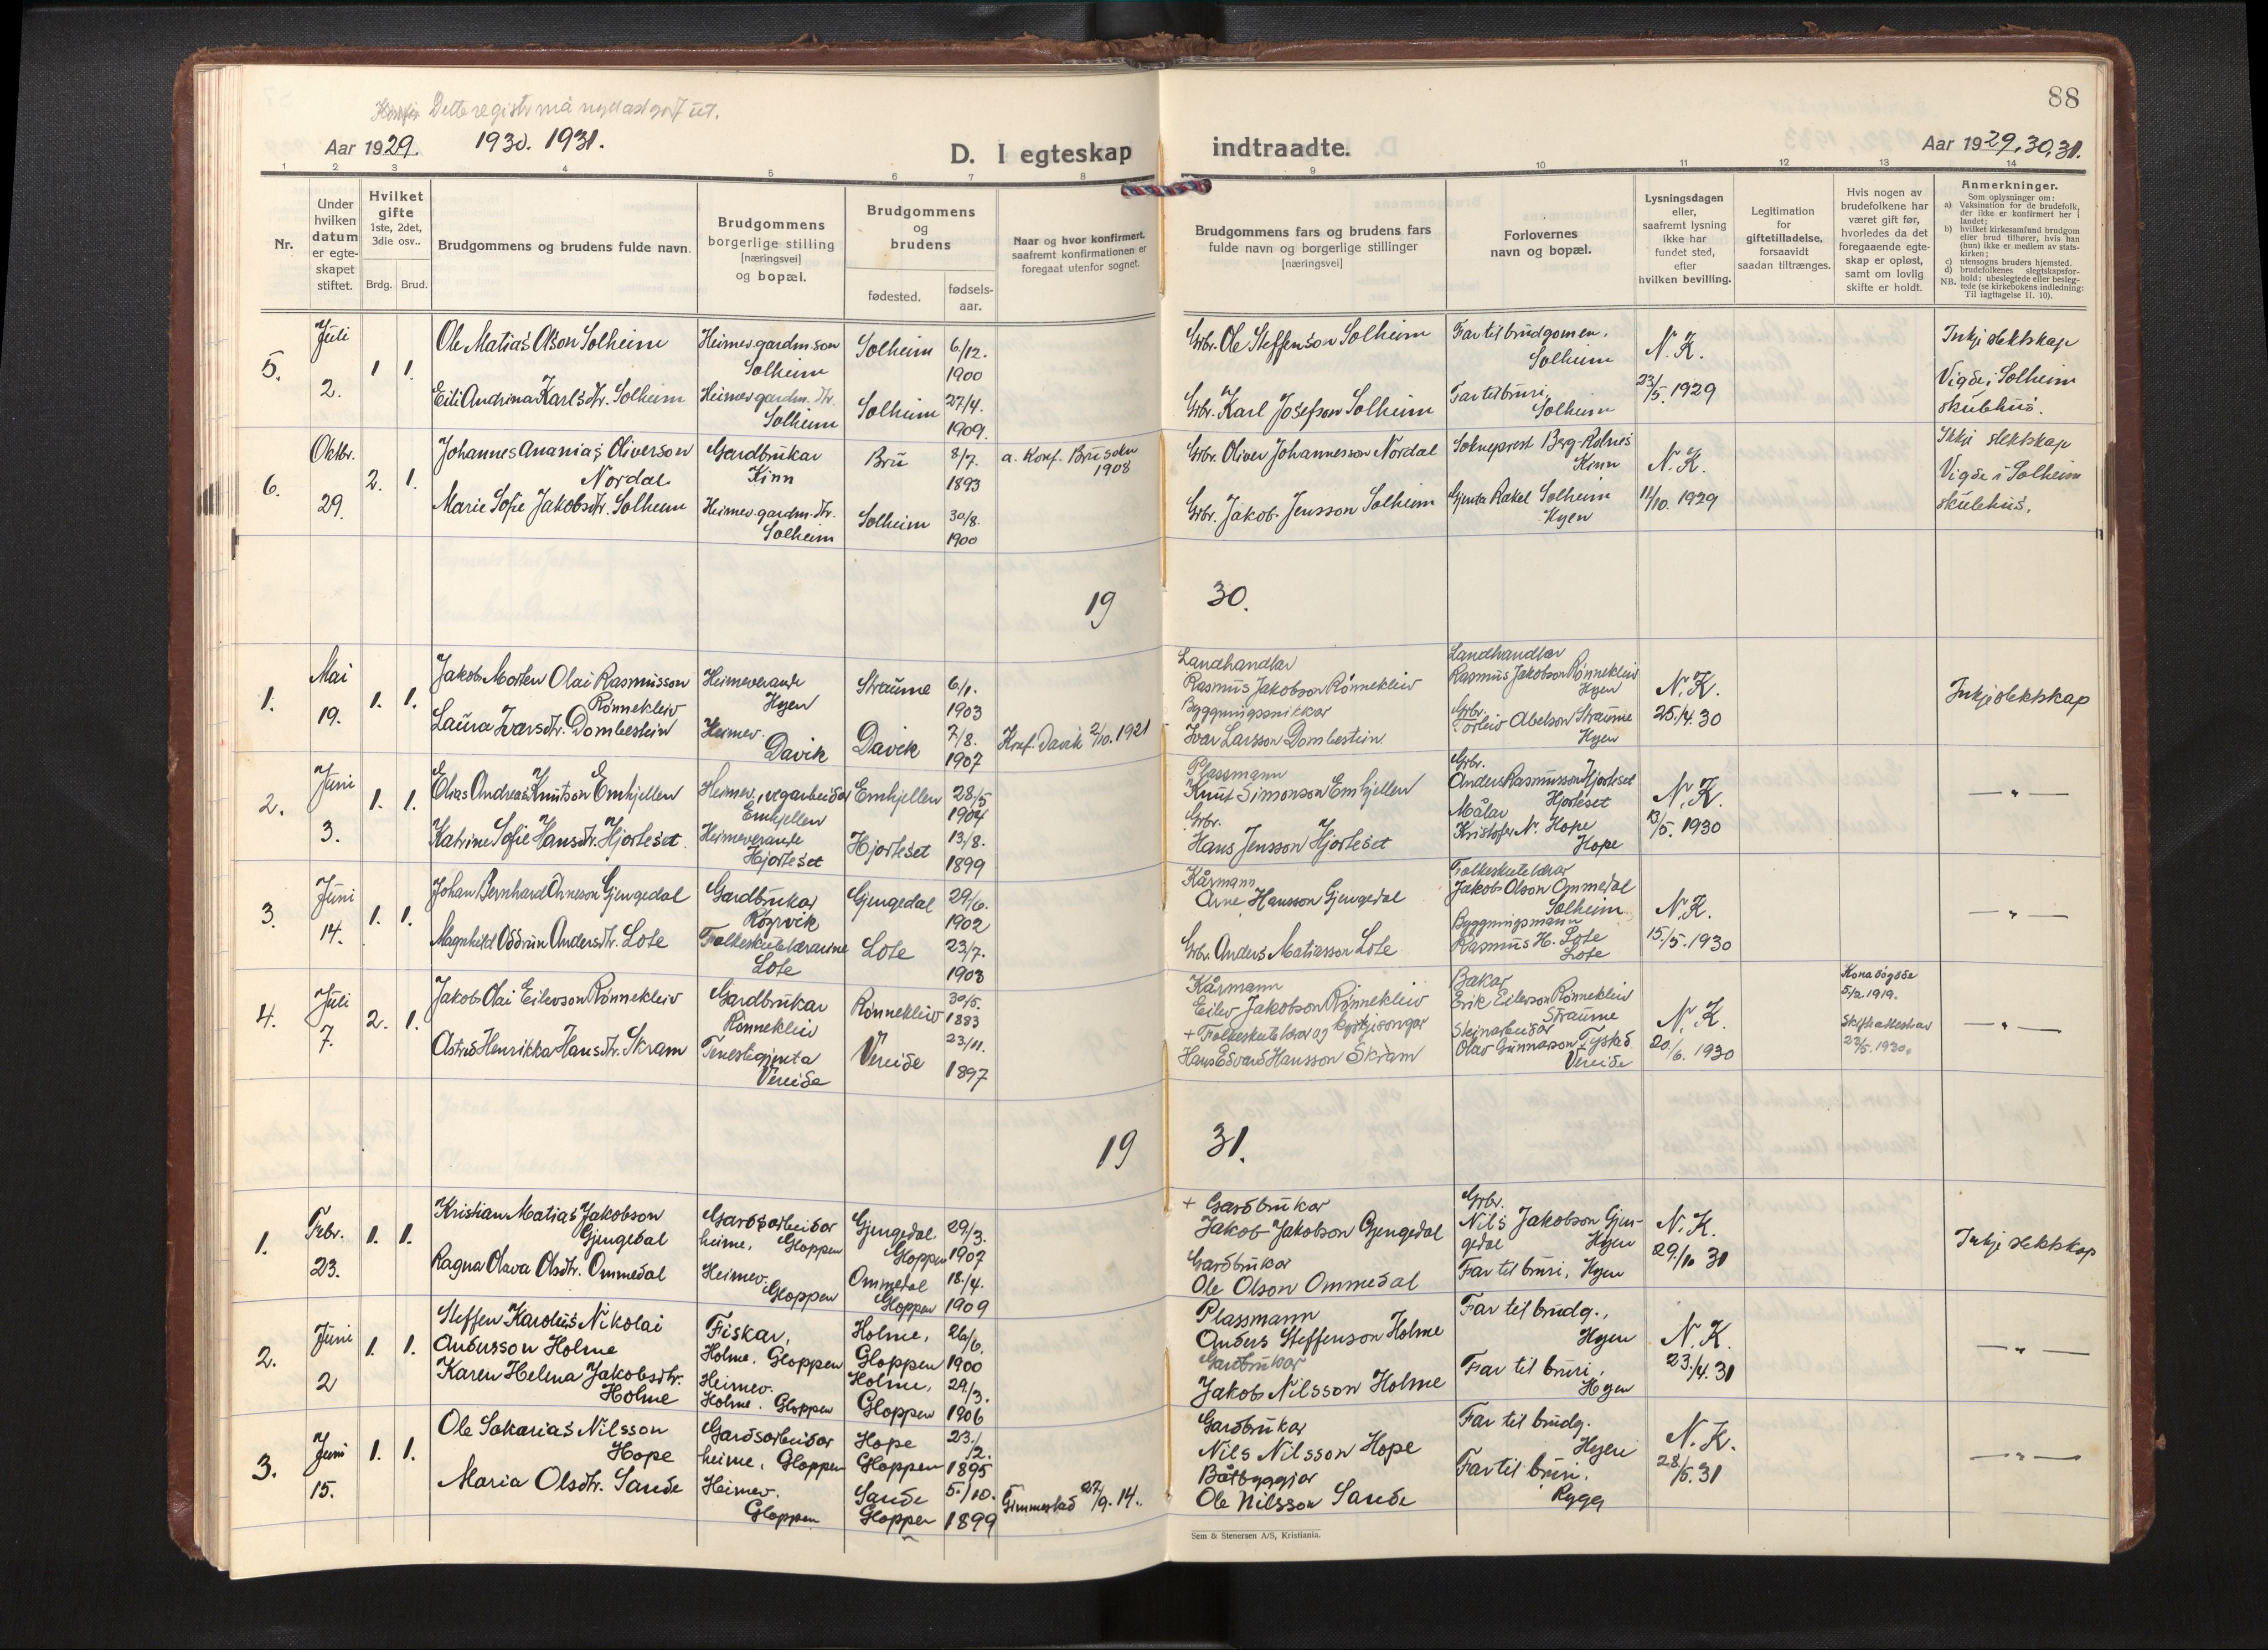 88
Dette registr må nyttast
Aar 1929. 1930. 1931.
D. I egteskap indtraadte.
Aar 1929, 30, 31.
1 2 3 4 5 6 7 8 9 10 11 12 13 14
Nr.
Under hvilken datum er egteskapet stiftet.
Hvilket gifte 1ste, 2det, 3die osv..
Brdg. Brud.
Brudgommens og brudens fulde navn.
Brudgommens borgerlige stilling [næringsvei] og bopæl.
Brudgommens og brudens
fødested. fødselsaar.
Naar og hvor konfirmert, saafremt konfirmationen er foregaat utenfor sognet.
Brudgommens fars og brudens fars fulde navn og borgerlige stillinger [næringsvei]
Forlovernes navn og bopæl.
Lysningsdagen eller, saafremt lysning ikke har fundet sted, efter hvilken bevilling.
Legitimation for giftetilladelse, forsaavidt saadan tiltrænges.
Hvis nogen av brudefolkene har været gift før, hvorledes da det foregaaende egteskap er opløst, samt om lovlig skifte er holdt.
Anmerkninger.
Som oplysninger om:
a) Vaksination for de brudefolk, der ikke er konfirmert her i landet;
b) hvilket kirkesamfund brudgom eller brud tilhører, hvis han (hun) ikke er medlem av statskirken;
c) utensogns bruders hjemsted.
d) brudefolkenes slegtskapsforhold: ubeslegtede eller beslegtede (se kirkebokens indledning:
NB. Til iagttagelse II. 10).
5. Juli 2. 1 1.
Ole Matias Olson Solheim
Heimev. gardm.son Solheim
Solheim 6/12. 1900
Grbr. Ole Steffenson Solheim
Far til brudgomen, Solheim
N.K. 23/5. 1929
Inkje slektskap
Vigde i Solheim skulehus.
Eili Andrina Karlsdtr. Solheim
Heimev. gardm. dtr. Solheim
Solheim 27/4. 1909.
Grbr. Karl Josefson Solheim
Far til bruri, Solheim
6. Oktbr. 29. 2. 1.
Johannes Ananias Oliverson Nordal
Gardbrukar Kinn
Bru 8/7. 1893
a. Konf. Bru sokn 1908
Grbr. Oliver Johannesson Nordal
Sokneprest Berg-Rolnes Kinn
N.K. 11/10. 1929
Ikkje slektskap
Vigde i Solheim skulehus.
Marie Sofie Jakobsdtr. Solheim
Heimev. gardm. dtr. Solheim
Solheim 30/8. 1900
Grbr. Jakob Jensson Solheim
Gjenta Rakel Solheim Hyen
1930.
1. Mai 19. 1. 1.
Jakob Morten Olai Rasmusson Rønnekleiv
Heimeverande Hyen
Straume 6/1. 1903
Landhandlar Rasmus Jakobson Rønnekleiv
Landhandlar Rasmus Jakobson Rønnekleiv Hyen
N.K. 25./4. 30
Inkje slektskap
Laura Ivarsdtr. Dombestein
Heimev. Davik
Davik 7/8. 1907
Konf. Davik 2/10. 1921
Byggningssnikkar Ivar Larsson Dombestein
Grbr. Torleiv Abelson Straume Hyen
2. Juni 3. 1. 1.
Elias Andreas Knutson Emhjellen
Heimev., vegarbeidar Emhjellen
Emhjellen 28/5 1904
Plassmann Knut Simonson Emhjellen
Grbr. Anders Rasmusson Hjorteset Hjorteset
N.K. 13/5. 1930
— " —
Katrine Sofie Hansdtr. Hjorteset.
Heimeverande Hjorteset
Hjorteset 13/8. 1899
Grbr. Hans Jensson Hjorteset
Målar Kristofer N. Hope Hope
3. Juni 14. 1. 1.
Johan Bernhard Arneson Gjengedal
Gardbrukar Rørvik
Gjengedal 29/6. 1902
Kårmann Arne Hansson Gjengedal
Folkeskulelærar Jakob Olson Ommedal Solheim
N.K. 15./5. 1930
— " —
Magnhild Oddrun Andersdtr. Lote
Folkeskulelærarinne Lote
Lote 23/7. 1903
Grbr. Anders Matiasson Lote
Byggningsmann Rasmus H. Lote Lote
4. Juli 7. 2. 1.
Jakob Olai Eilevson Rønnekleiv
Gardbrukar Rønnekleiv
Rønnekleiv 30/5. 1883
Kårmann Eilev Jakobson Rønnekleiv
Bakar Erik Eilevson Rønnekleiv Straume
N.K. 20./6. 1930
Kona døydde 5/2. 1919.
Skifteattestar 23/5. 1930.
— " —
Astrid Henrikka Hansdtr. Skram
Tenestegjenta Vereide
Vereide 23/11. 1897
+ Folkeskulelærar og kyrkjesongar Hans Edvard Hansson Skram
Steinarbeidar Olav Gunnarson Tystad Vereide
1931.
1. Febr. 23. 1. 1.
Kristian Matias Jakobson Gjengedal
Gardsarbeidar heime, Gloppen
Gjengedal, Gloppen 29/3. 1907
+ Gardbrukar Jakob Jakobson Gjengedal
Grbr. Nils Jakobson Gjengedal Hyen
N.K. 29./10 31
Inkje slektskap
Ragna Olava Olsdtr. Ommedal
Heimev. Gloppen
Ommedal Gloppen 18./4. 1909
Gardbrukar Ole Olson Ommedal
Far til bruri, Hyen
2. Juni 2 1. 1.
Steffen Karolus Nikolai Andersson Holme
Fiskar, Holme, Gloppen
Holme, Gloppen 26/6. 1900
Plassmann Anders Steffenson Holme
Far til brudg., Hyen
N.K. 23./4. 31
— " —
Karen Helena Jakobsdtr. Holme
Heimev. Holme, Gloppen
Holme, Gloppen 29/3. 1906
Gardbrukar Jakob Nilsson Holme
Far til bruri, Hyen
3. Juni 15. 1. 1.
Ole Sakarias Nilsson Hope
Gardsarbeidar heime, Gloppen
Hope Gloppen 23./2. 1895
Gardbrukar Nils Nilsson Hope
Far til brudg. Hyen
N.K. 28./5. 31
— " —
Maria Olsdtr. Sande
Heimev. Gloppen
Sande Gloppen 5./10. 1899
Gimmestad 27/9. 14.
Båtbyggjar Ole Nilsson Sande
Far til bruri. Rygg
Sem & Stenersen A/S, Kristiania.